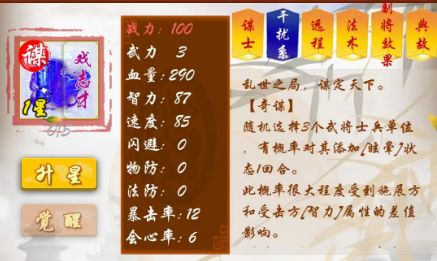 谋
戏志才
1星
645
升星
觉醒
战力：100
武力 3
血量：290
智力：87
速度：85
闪避：0
物防：0
法防：0
暴击率：12
会心率：6
谋士
干扰系
远程
法术
制将效果
典故
乱世之局，谋定天下。
【奇谋】
随机选择3个武将士兵单位
，有概率对其添加[眩晕]状
态1回合。
此概率很大程度受到施展方
和受击方[智力]属性的差值
影响。